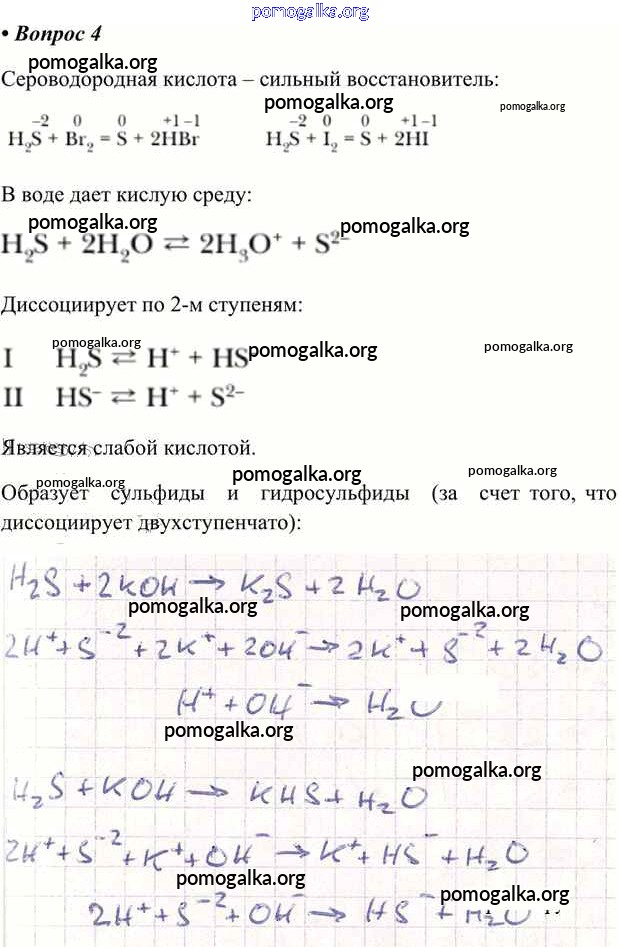 pomogalka.org
• Вопрос 4
pomogalka.org
Сероводородная кислота – сильный восстановитель:
pomogalka.org
pomogalka.org
–2 0 0 +1 –1
H₂S + Br₂ = S + 2HBr
–2 0 0 +1 –1
H₂S + I₂ = S + 2HI
В воде дает кислую среду:
pomogalka.org
pomogalka.org
H₂S + 2H₂O ⇄ 2H₃O⁺ + S²⁻
Диссоциирует по 2-м ступеням:
pomogalka.org
pomogalka.org
pomogalka.org
I H₂S ⇄ H⁺ + HS
II HS⁻ ⇄ H⁺ + S²⁻
Является слабой кислотой.
pomogalka.org
pomogalka.org
pomogalka.org
Образует сульфиды и гидросульфиды (за счет того, что
диссоциирует двухступенчато):
H₂S + 2KOH → K₂S + 2H₂O
pomogalka.org
pomogalka.org
2H⁺ + S⁻² + 2K⁺ + 2OH⁻ → 2K⁺ + S⁻² + 2H₂O
H⁺ + OH⁻ → H₂O
pomogalka.org
pomogalka.org
H₂S + KOH → KHS + H₂O
2H⁺ + S⁻² + K⁺ + OH⁻ → K⁺ + HS⁻ + H₂O
pomogalka.org
pomogalka.org
2H⁺ + S⁻² + OH⁻ → HS⁻ + H₂O